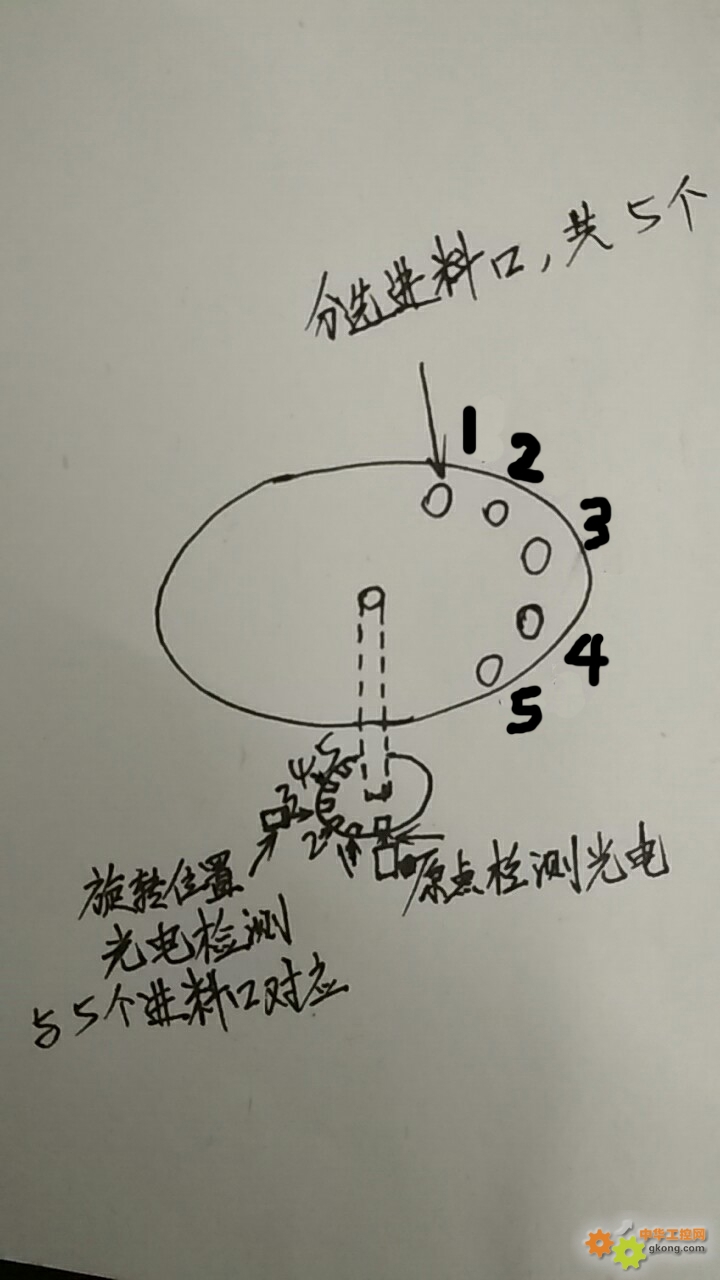 分选进料口,共5个
1
2
3
4
5
5
4
3
2
1
原点检测光电
旋转位置
光电检测
与5个进料口对应
中华工控网
gkong.com